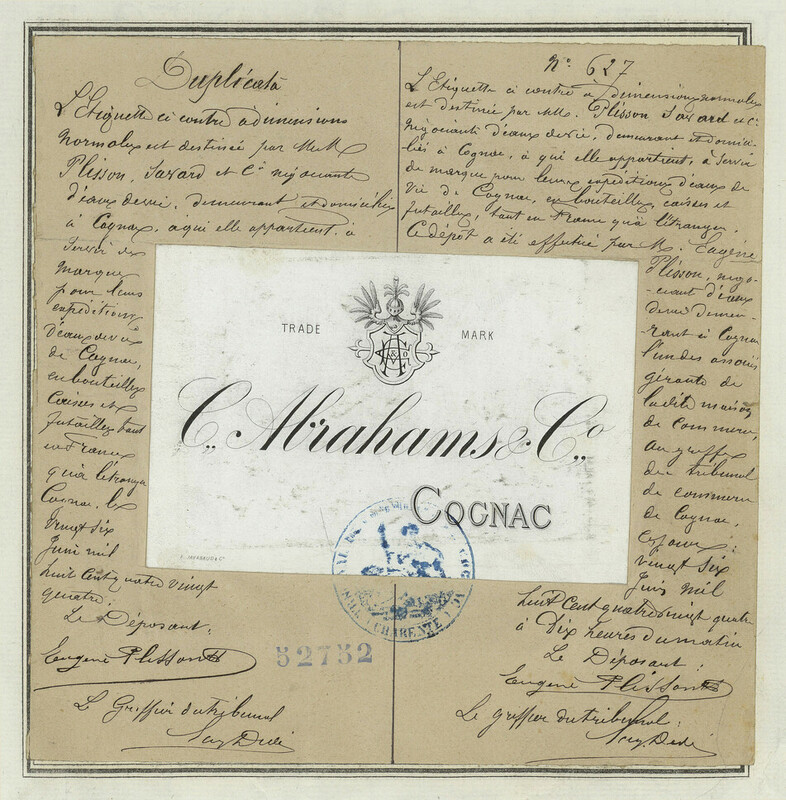 Duplicata
L'Etiquette ci contre à dimensions
normales est destinée par MM
Plisson, Savard et Cie négociants
d'eaux de vie, demeurant et domiciliés
à Cognac, à qui elle appartient, à
servir de
marque
pour leurs
expéditions
d'eaux de vie
de Cognac,
en bouteilles
caisses et
futailles, tant
en France
qu'à l'étranger
Cognac, le
vingt six
Juin mil
huit cent quatre vingt
quatre.
Le Déposant:
Eugène Plisson
Le Greffier du tribunal
No 627
L'Etiquette ci contre à dimensions normales
est destinée par MM. Plisson Savard et Cie
négociants d'eaux de vie, demeurant et domici-
liés à Cognac, à qui elle appartient, à servir
de marque pour leurs expéditions d'eaux de
vie de Cognac, en bouteilles, caisses et
futailles, tant en France qu'à l'étranger.
Ce dépôt a été effectué par M. Eugène
Plisson, négo-
-ciant d'eaux
de vie demeu-
-rant à Cognac
l'un des associés
gérants de
ladite maison
de commerce,
au greffe
du tribunal
de commerce
de Cognac,
ce jour:
vingt six
Juin mil
huit cent quatre vingt quatre
à Dix heures du matin
Le Déposant:
Eugène Plisson
Le greffier du tribunal:
TRADE MARK
C. Abrahams & Co.
COGNAC
CHARENTE
52752